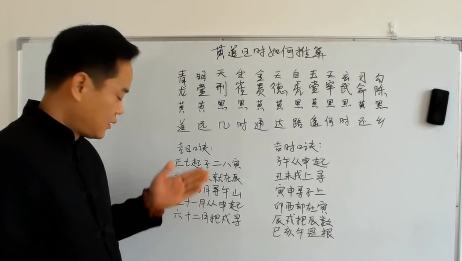 黄道日时如何推算
青 明 天 朱 金 天 白 玉 天 玄 司 勾
龙 堂 刑 雀 匮 德 虎 堂 牢 武 命 陈
黄 黄 黑 黑 黄 黄 黑 黄 黑 黑 黄 黑
道 远 几 时 通 达 路 遥 何 时 还 乡
吉日口诀:
正七起子二八寅
就在辰
月寻午
十一月从申起
六十二月把戌寻
吉时口诀:
子午从申起
丑未戌上寻
寅申子上
卯酉却在寅
辰戌把辰数
巳亥午是根